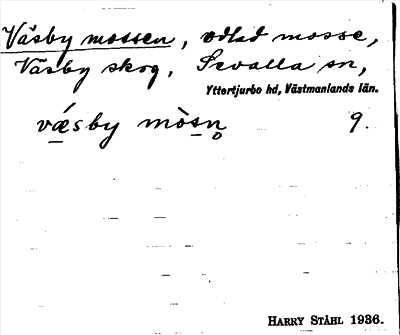 Väsby mossen, odlad mosse,
Väsby skog, Sevalla sn,
Yttertjurbo hd, Västmanlands län.
vǽsby mòsn̥ 9.
HARRY STÅHL 1936.